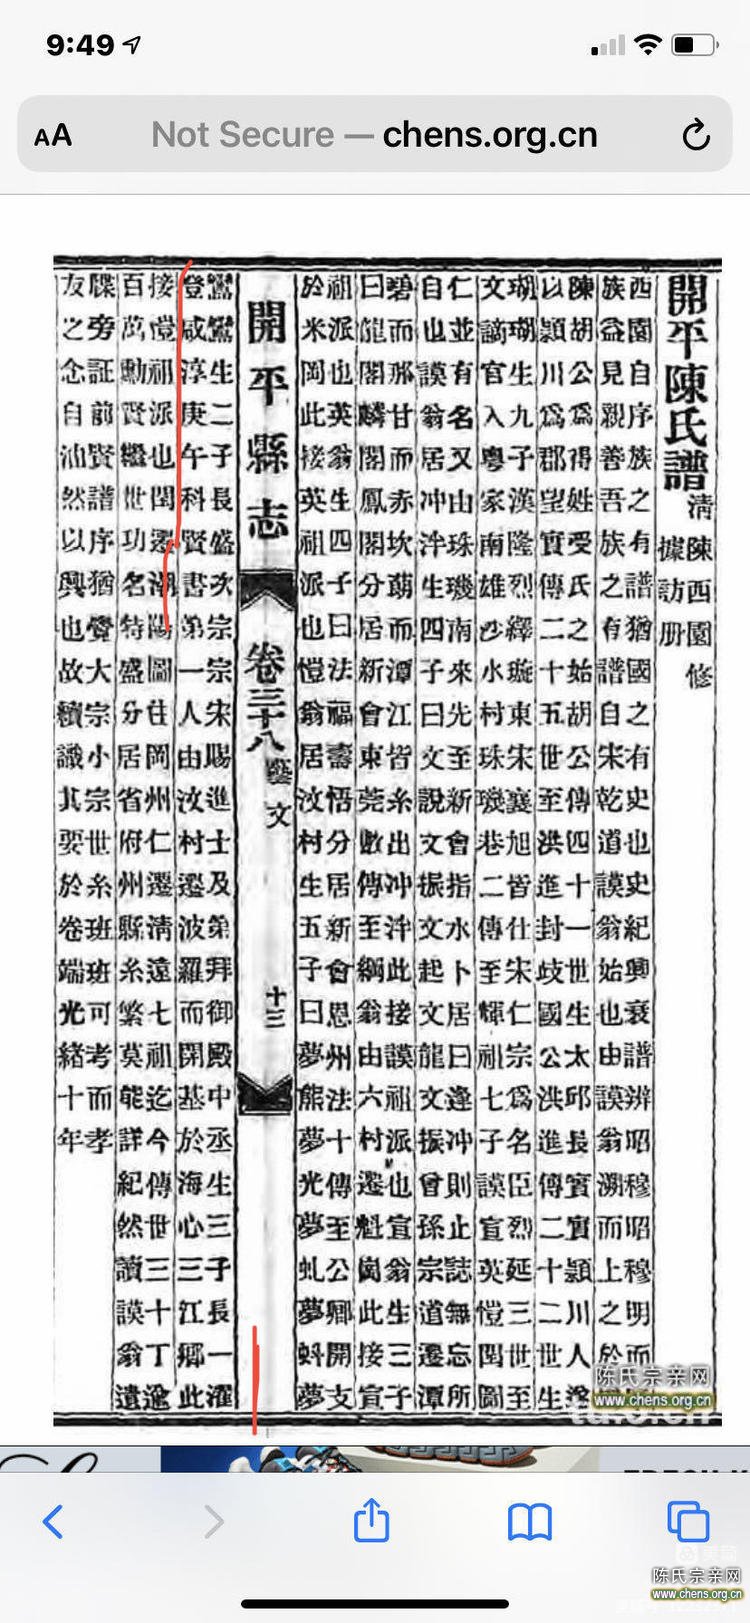 9:49
AA Not Secure — chens.org.cn
開平陳氏譜
清陳西園修
據訪册
西園自序族之有譜猶國之有史也史紀興衰譜辨昭穆昭穆明而
族益見親善吾族之有譜自宋乾道謨翁始也由謨翁溯而上之於
陳胡公爲得姓受氏之始胡公傳四十一世生太邱長寔寔潁川人遂
以潁川爲郡望實傳二十五世至洪進封岐國公洪進傳二十二世生
瑚瑚生九子漢隆烈繹璇東宋襄旭皆仕宋仁宗爲名臣烈延三世至
文謫官入粵家南雄沙水村珠璣巷二傳至輝祖七子謨宣英愷閏圖
仁並有名又由珠璣南來先至新會指水卜居曰逢冲則止誌無忘所
自也謨翁居冲泮生四子曰文說文振文起文龍文振曾孫宗道遷潭
碧而那甘而赤坎蓢而潭江皆系出冲泮此接謨祖派也宣翁生三子
曰龍閣麟閣鳳閣分居新會東莞數傳至綱翁由六村遷魁崗此接宣
祖派也英翁生四子曰法福壽悟分居新會恩州法十傳至公卿開支
於米岡此接英祖派也愷翁居汶村生五子曰夢熊夢光夢虬夢蚪夢
開平縣志 卷三十八 藝文 十三
鸞鸞生二子長盛次宗宗宋賜進士及第拜御殿中丞生三子長一濯
登咸淳庚午科賢書第一人由汶村遷波羅而開基於海心三江鄉此
接愷祖派也閏遷潮陽圖住岡州仁遷清遠七祖迄今傳世三十丁逾
百萬勳賢繼世功名特盛分居省府州縣系繁莫能詳紀然讀謨翁遺
牒旁証前賢譜序猶覺大宗小宗世系班班可考而孝
友之念自油然以興也故續識其要於卷端光緒十年
陳氏宗亲网
www.chens.org.cn
陳氏宗亲网
www.chens.org.cn